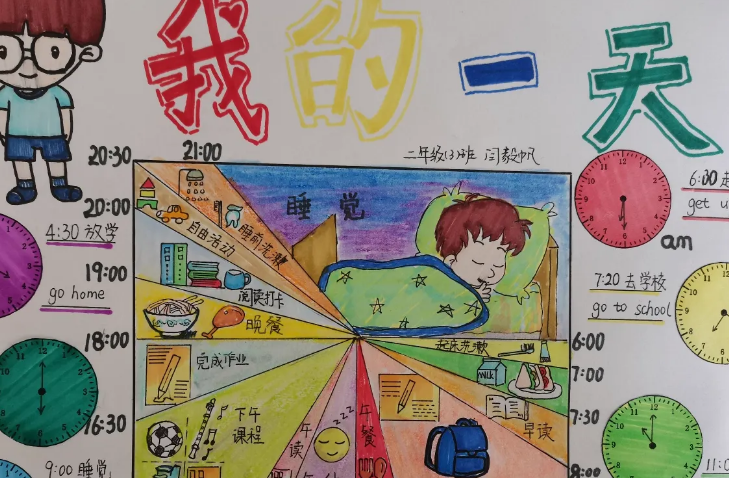 我的一天
二年级(3)班 闫毅帆
20:30
21:00
20:00
19:00
18:00
16:30
6:00
7:00
7:30
8:00
睡觉
睡前洗漱
自由活动
阅读打卡
晚餐
完成作业
下午
课程
午
读
zzz
午
餐
起床洗漱
MILK
早读
4:30 放学
go home
9:00 睡觉
6:30
get u
am
7:20 去学校
go to school
11:0